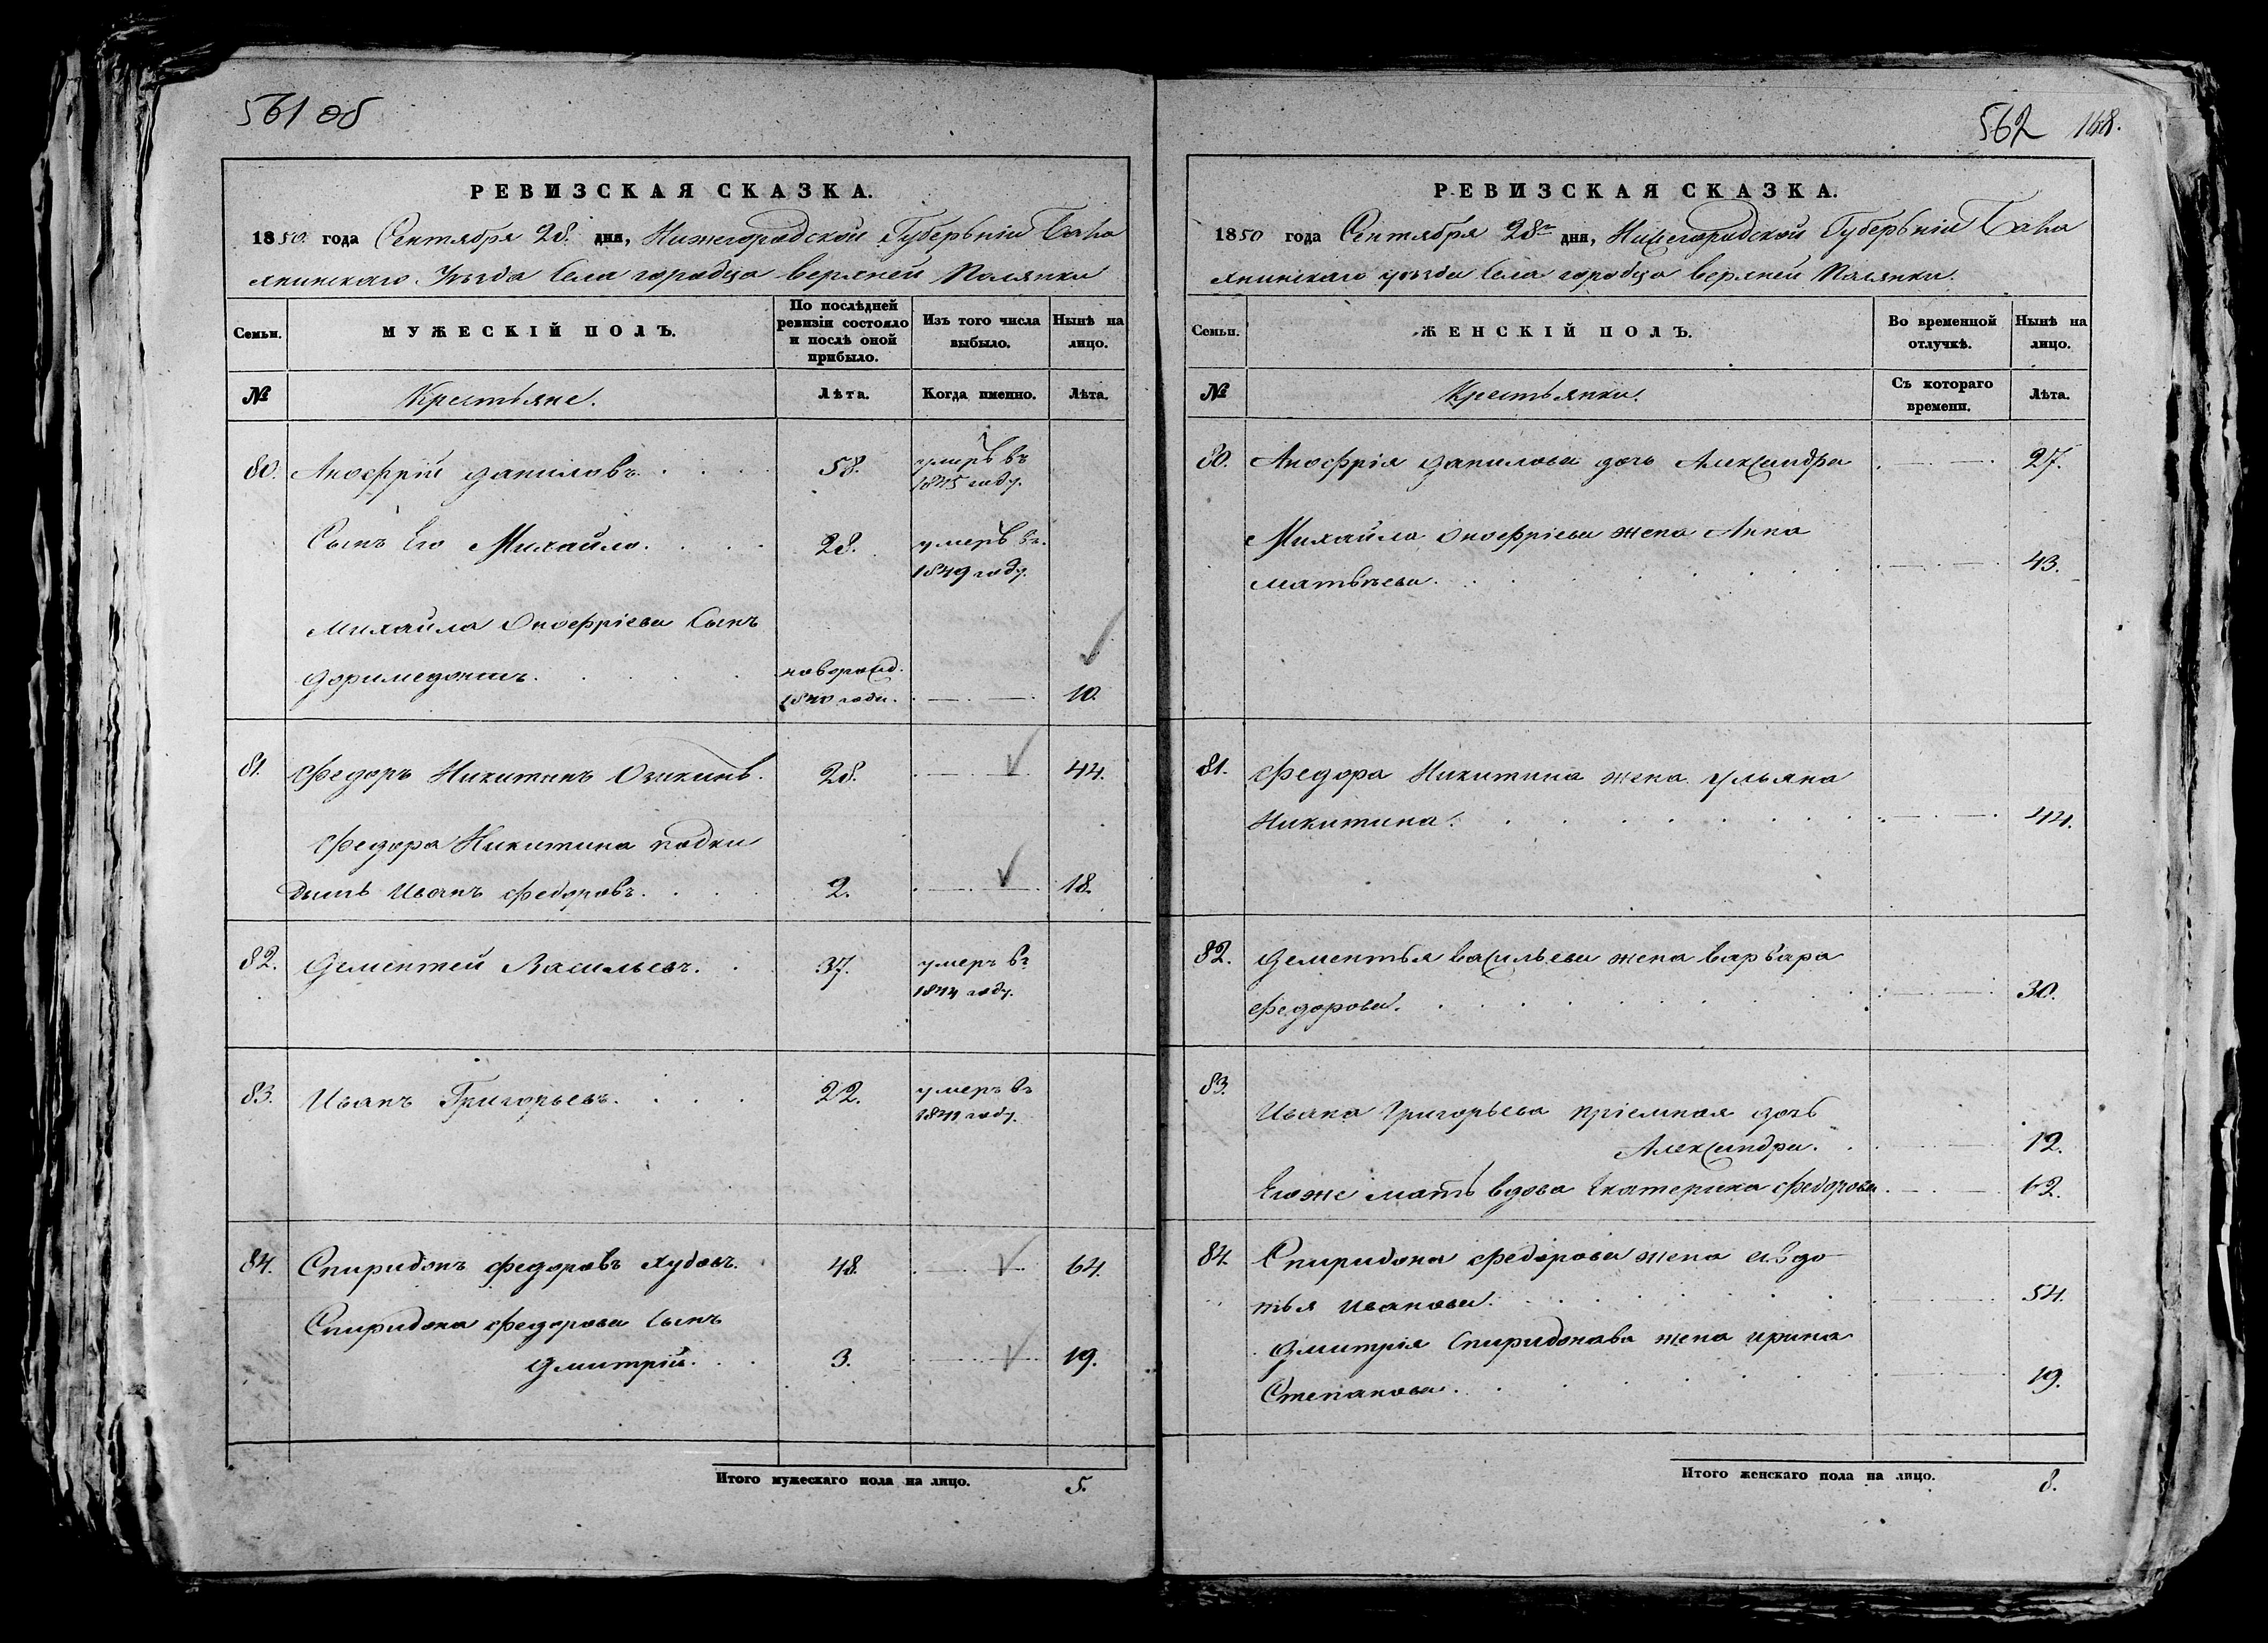 561 об
РЕВИЗСКАЯ СКАЗКА.
1850 года Сентября 28. дня, Нижегородской Губернiи Бала
хнинскаго Уѣзда Села городца верхней Полянки
Семьи.
МУЖЕСКIЙ ПОЛЪ.
По послѣдней ревизiи состояло и послѣ оной прибыло.
Изъ того числа выбыло.
Нынѣ на лицо.
№
Крестьяне.
Лѣта.
Когда именно.
Лѣта.
80. Анофрiй даниловъ. 58. умеръ въ
1845 году.
Сынъ Его Михайло. 28. умеръ въ
1849 году.
Михайла Онофрiева Сынъ
доримедонтъ. новорожд.
1840 года. 10.
81. Федоръ Никитинъ Озикинъ. 28. 44.
Федора Никитина подки
дышь Иванъ Федоровъ. 2. 18.
82. Дементей Васильевъ. 37. умеръ въ
1844 году.
83. Иванъ Григорьевъ. 22. умеръ въ
1841 году.
84. Спиридонъ Федоровъ Худовъ. 48. 64.
Спиридона Федорова Сынъ
Дмитрiй. 3. 19.
Итого мужескаго пола на лицо. 5.
562 168.
РЕВИЗСКАЯ СКАЗКА.
1850 года Сентября 28го дня, Нижегородской Губернiи Бала
хнинскаго уѣзда Села городца верхней Полянки.
Семьи.
ЖЕНСКIЙ ПОЛЪ.
Во временной отлучкѣ.
Нынѣ на лицо.
№
Крестьянки.
Съ котораго времени.
Лѣта.
80. Анофрiя данилова дочь Александра 27.
Михайла Онофрiева жена Анна
матвѣева. 43.
81. Федора Никитина жена Ульяна
Никитина. 44.
82. Дементья васильева жена варвара
Федорова. 30.
83.
Ивана Григорьева прiемная дочь
Александра. 12.
Егоже мать вдова Екатерина Федорова 62.
84. Спиридона Федорова жена авдо
тья Иванова. 54.
Дмитрiя Спиридонава жена ирина
Степанова. 19.
Итого женскаго пола на лицо. 8.